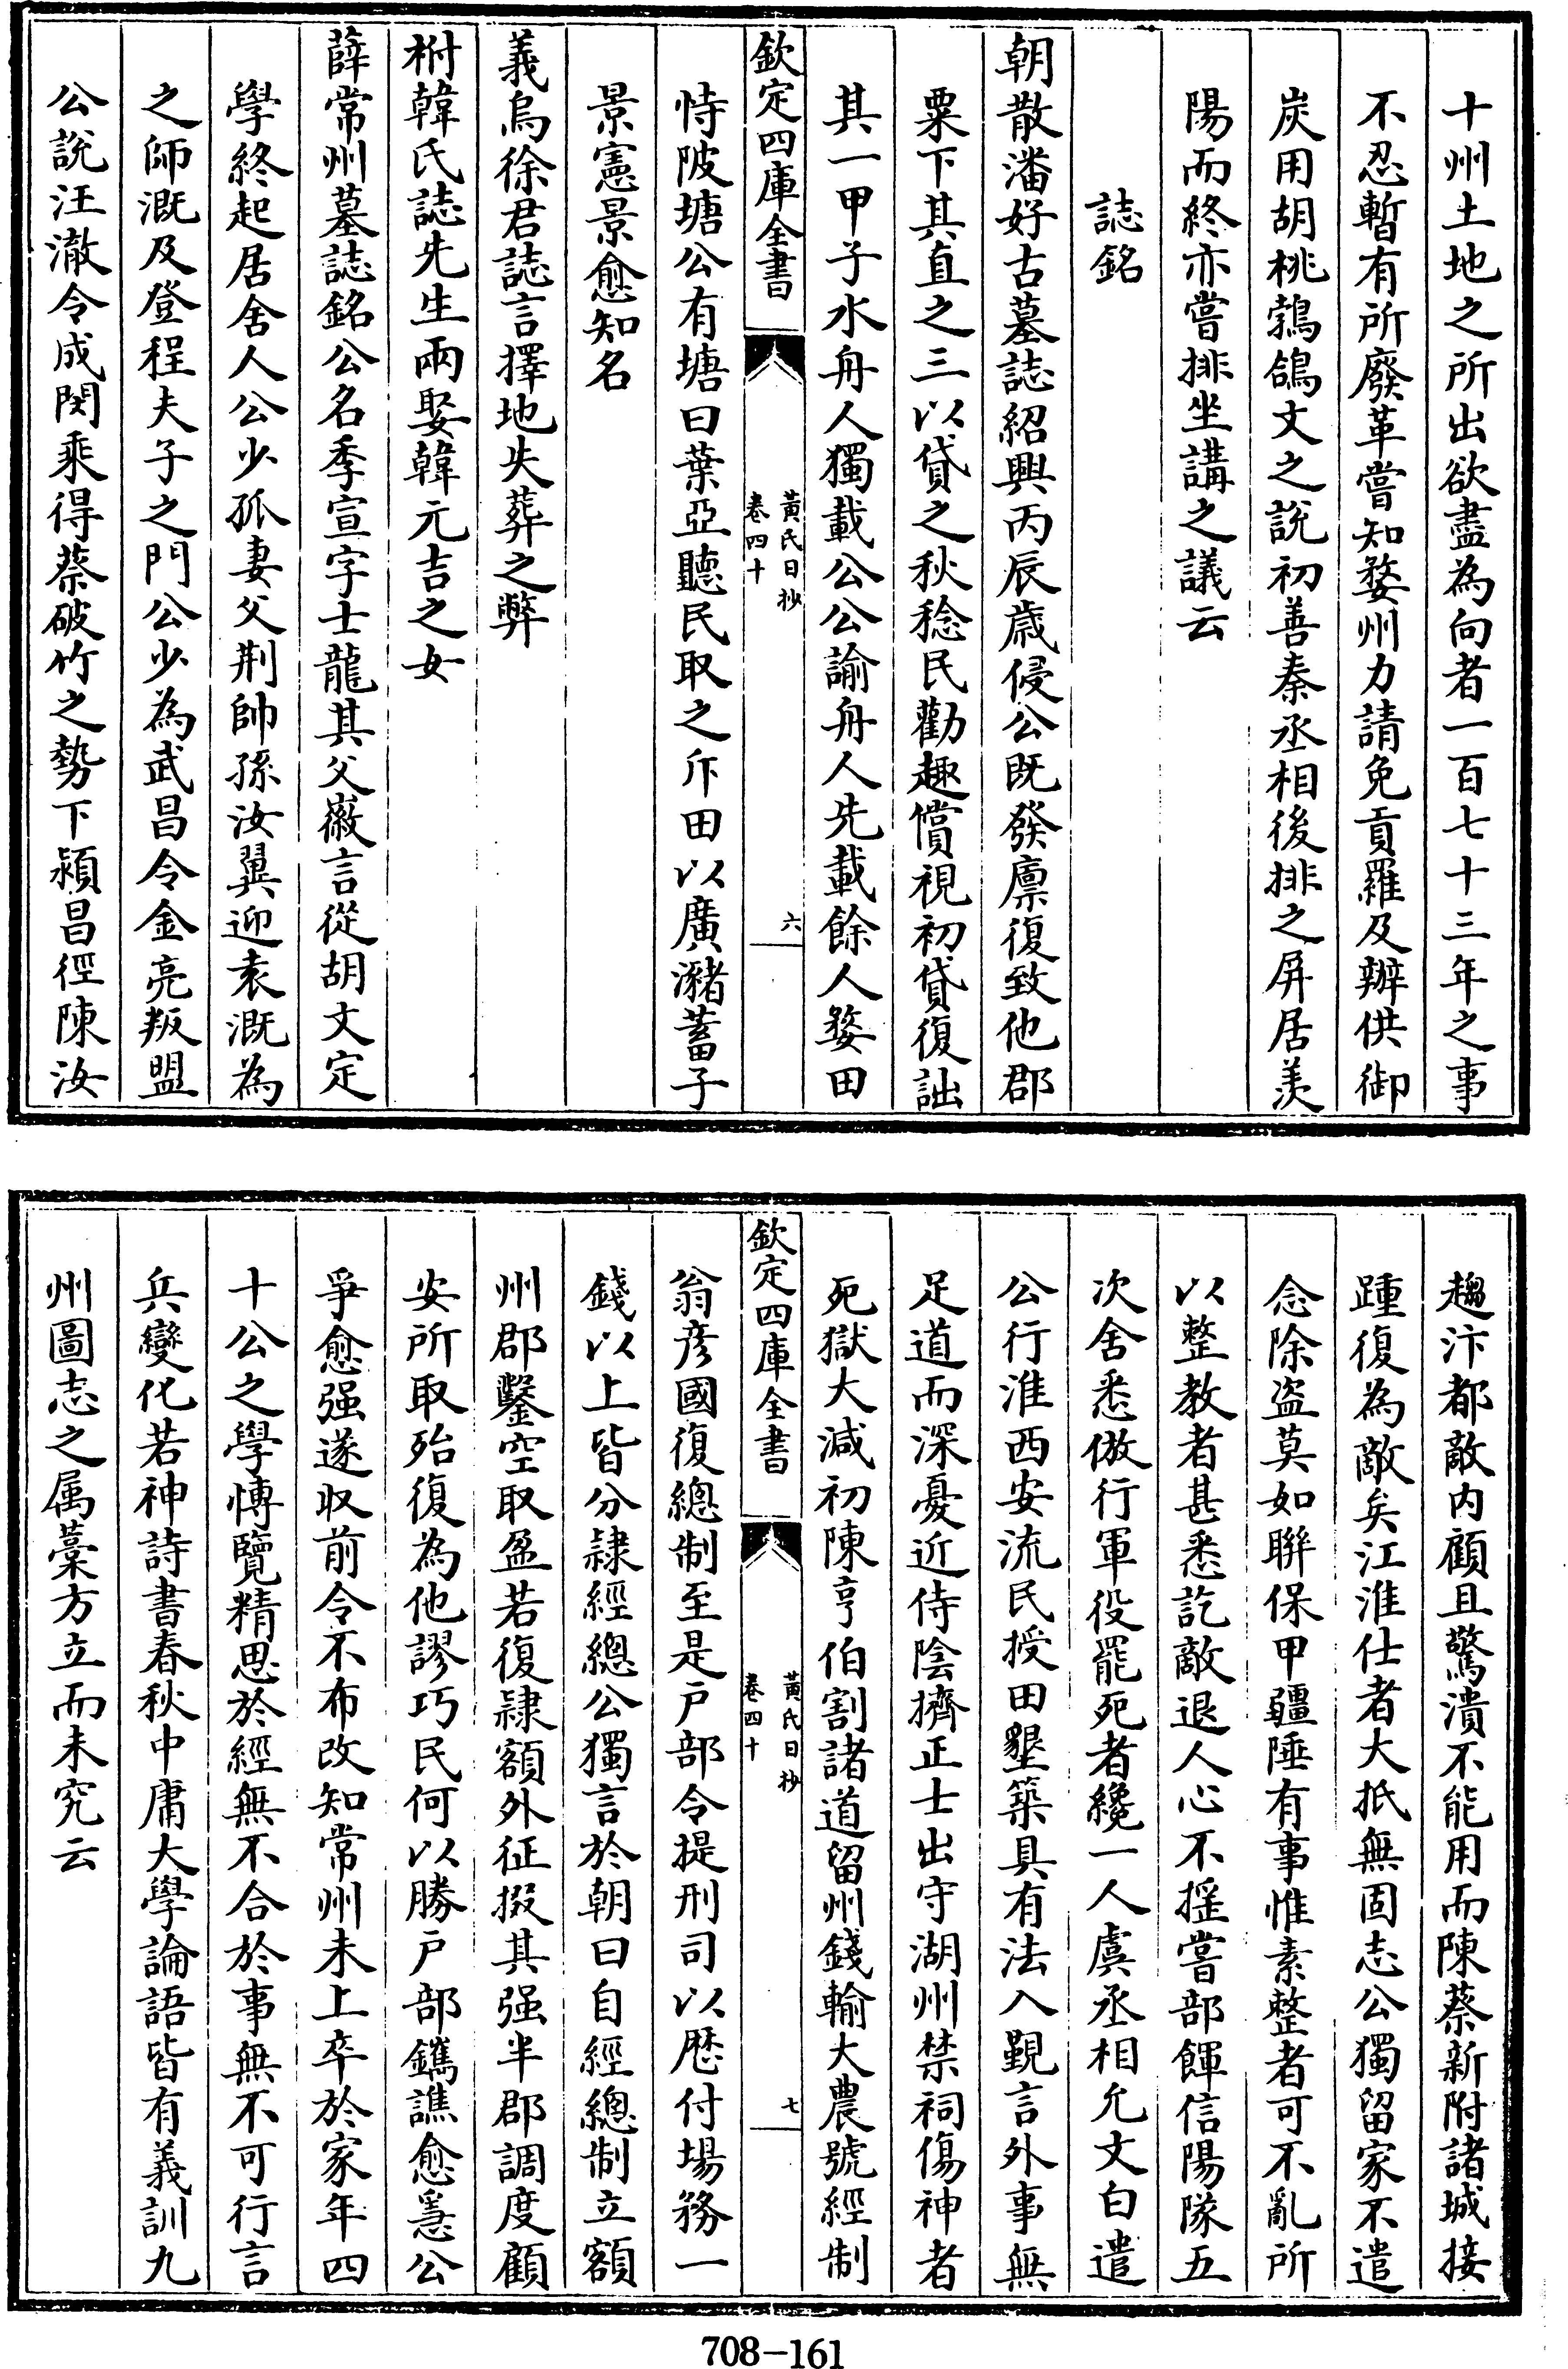 十州土地之所出欲盡為向者一百七十三年之事
不忍暫有所廢革嘗知婺州力請免貢羅及辦供御
炭用胡桃鵓鴿文之說初善秦丞相後排之屏居羨
陽而終亦嘗排坐講之議云
誌銘
朝散潘好古墓誌紹興丙辰歲侵公既發廩復致他郡
粟下其直之三以貸之秋稔民勸趣償視初貸復詘
其一甲子水舟人獨載公公諭舟人先載餘人婺田
欽定四庫全書
黃氏日抄
卷四十
六
恃陂塘公有塘曰葉亞聽民取之斥田以廣瀦蓄子
景憲景愈知名
義烏徐君誌言擇地失葬之弊
祔韓氏誌先生兩娶韓元吉之女
薛常州墓誌銘公名季宣字士龍其父徽言從胡文定
學終起居舍人公少孤妻父荆帥孫汝翼迎袁溉為
之師溉及登程夫子之門公少為武昌令金亮叛盟
公說汪澈令成閔乘得蔡破竹之勢下潁昌徑陳汝
趨汴都敵内顧且驚潰不能用而陳蔡新附諸城接
踵復為敵矣江淮仕者大抵無固志公獨留家不遣
念除盗莫如聨保甲疆陲有事惟素整者可不亂所
以整教者甚悉訖敵退人心不摇嘗部餫信陽隊五
次舍悉倣行軍役罷死者纔一人虞丞相允文白遣
公行淮西安流民授田墾築具有法入覲言外事無
足道而深憂近侍陰擠正士出守湖州禁祠傷神者
死獄大减初陳亨伯割諸道留州錢輸大農號經制
欽定四庫全書
黃氏日抄
卷四十
七
翁彦國復總制至是户部令提刑司以厯付場務一
錢以上皆分隷經總公獨言於朝曰自經總制立額
州郡鑿空取盈若復隷額外征掇其强半郡調度顧
安所取殆復為他謬巧民何以勝户部鐫譙愈急公
爭愈强遂収前令不布改知常州未上卒於家年四
十公之學博覽精思於經無不合於事無不可行言
兵變化若神詩書春秋中庸大學論語皆有義訓九
州圖志之属藁方立而未究云
708-161